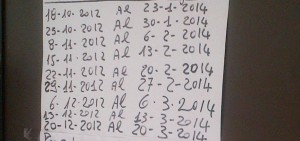 18-10-2012 Al 23-1-2014
25-10-2012 Al 30-1-2014
8-11-2012 Al 6-2-2014
15-11-2012 Al 13-2-2014
22-11-2012 Al 20-2-2014
29-11-2012 Al 27-2-2014
6-12-2012 Al 6-3-2014
13-12-2012 Al 13-3-2014
20-12-2012 Al 20-3-2014